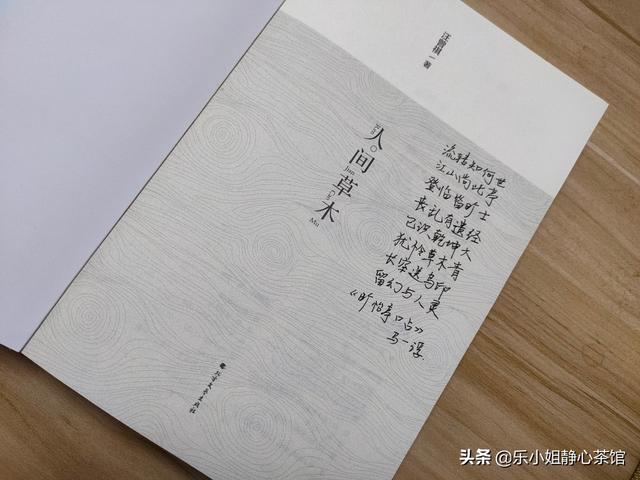 汪曾祺 著
人间草木
Jian
Mu
流转知何世
江山尚此亭
登临皆旷士
丧乱有遗经
已识乾坤大
犹怜草木青
长空送鸟印
留幻与人灵
《旷怡亭口占》
马一浮
文艺出版社
头条 @乐小姐静心茶馆